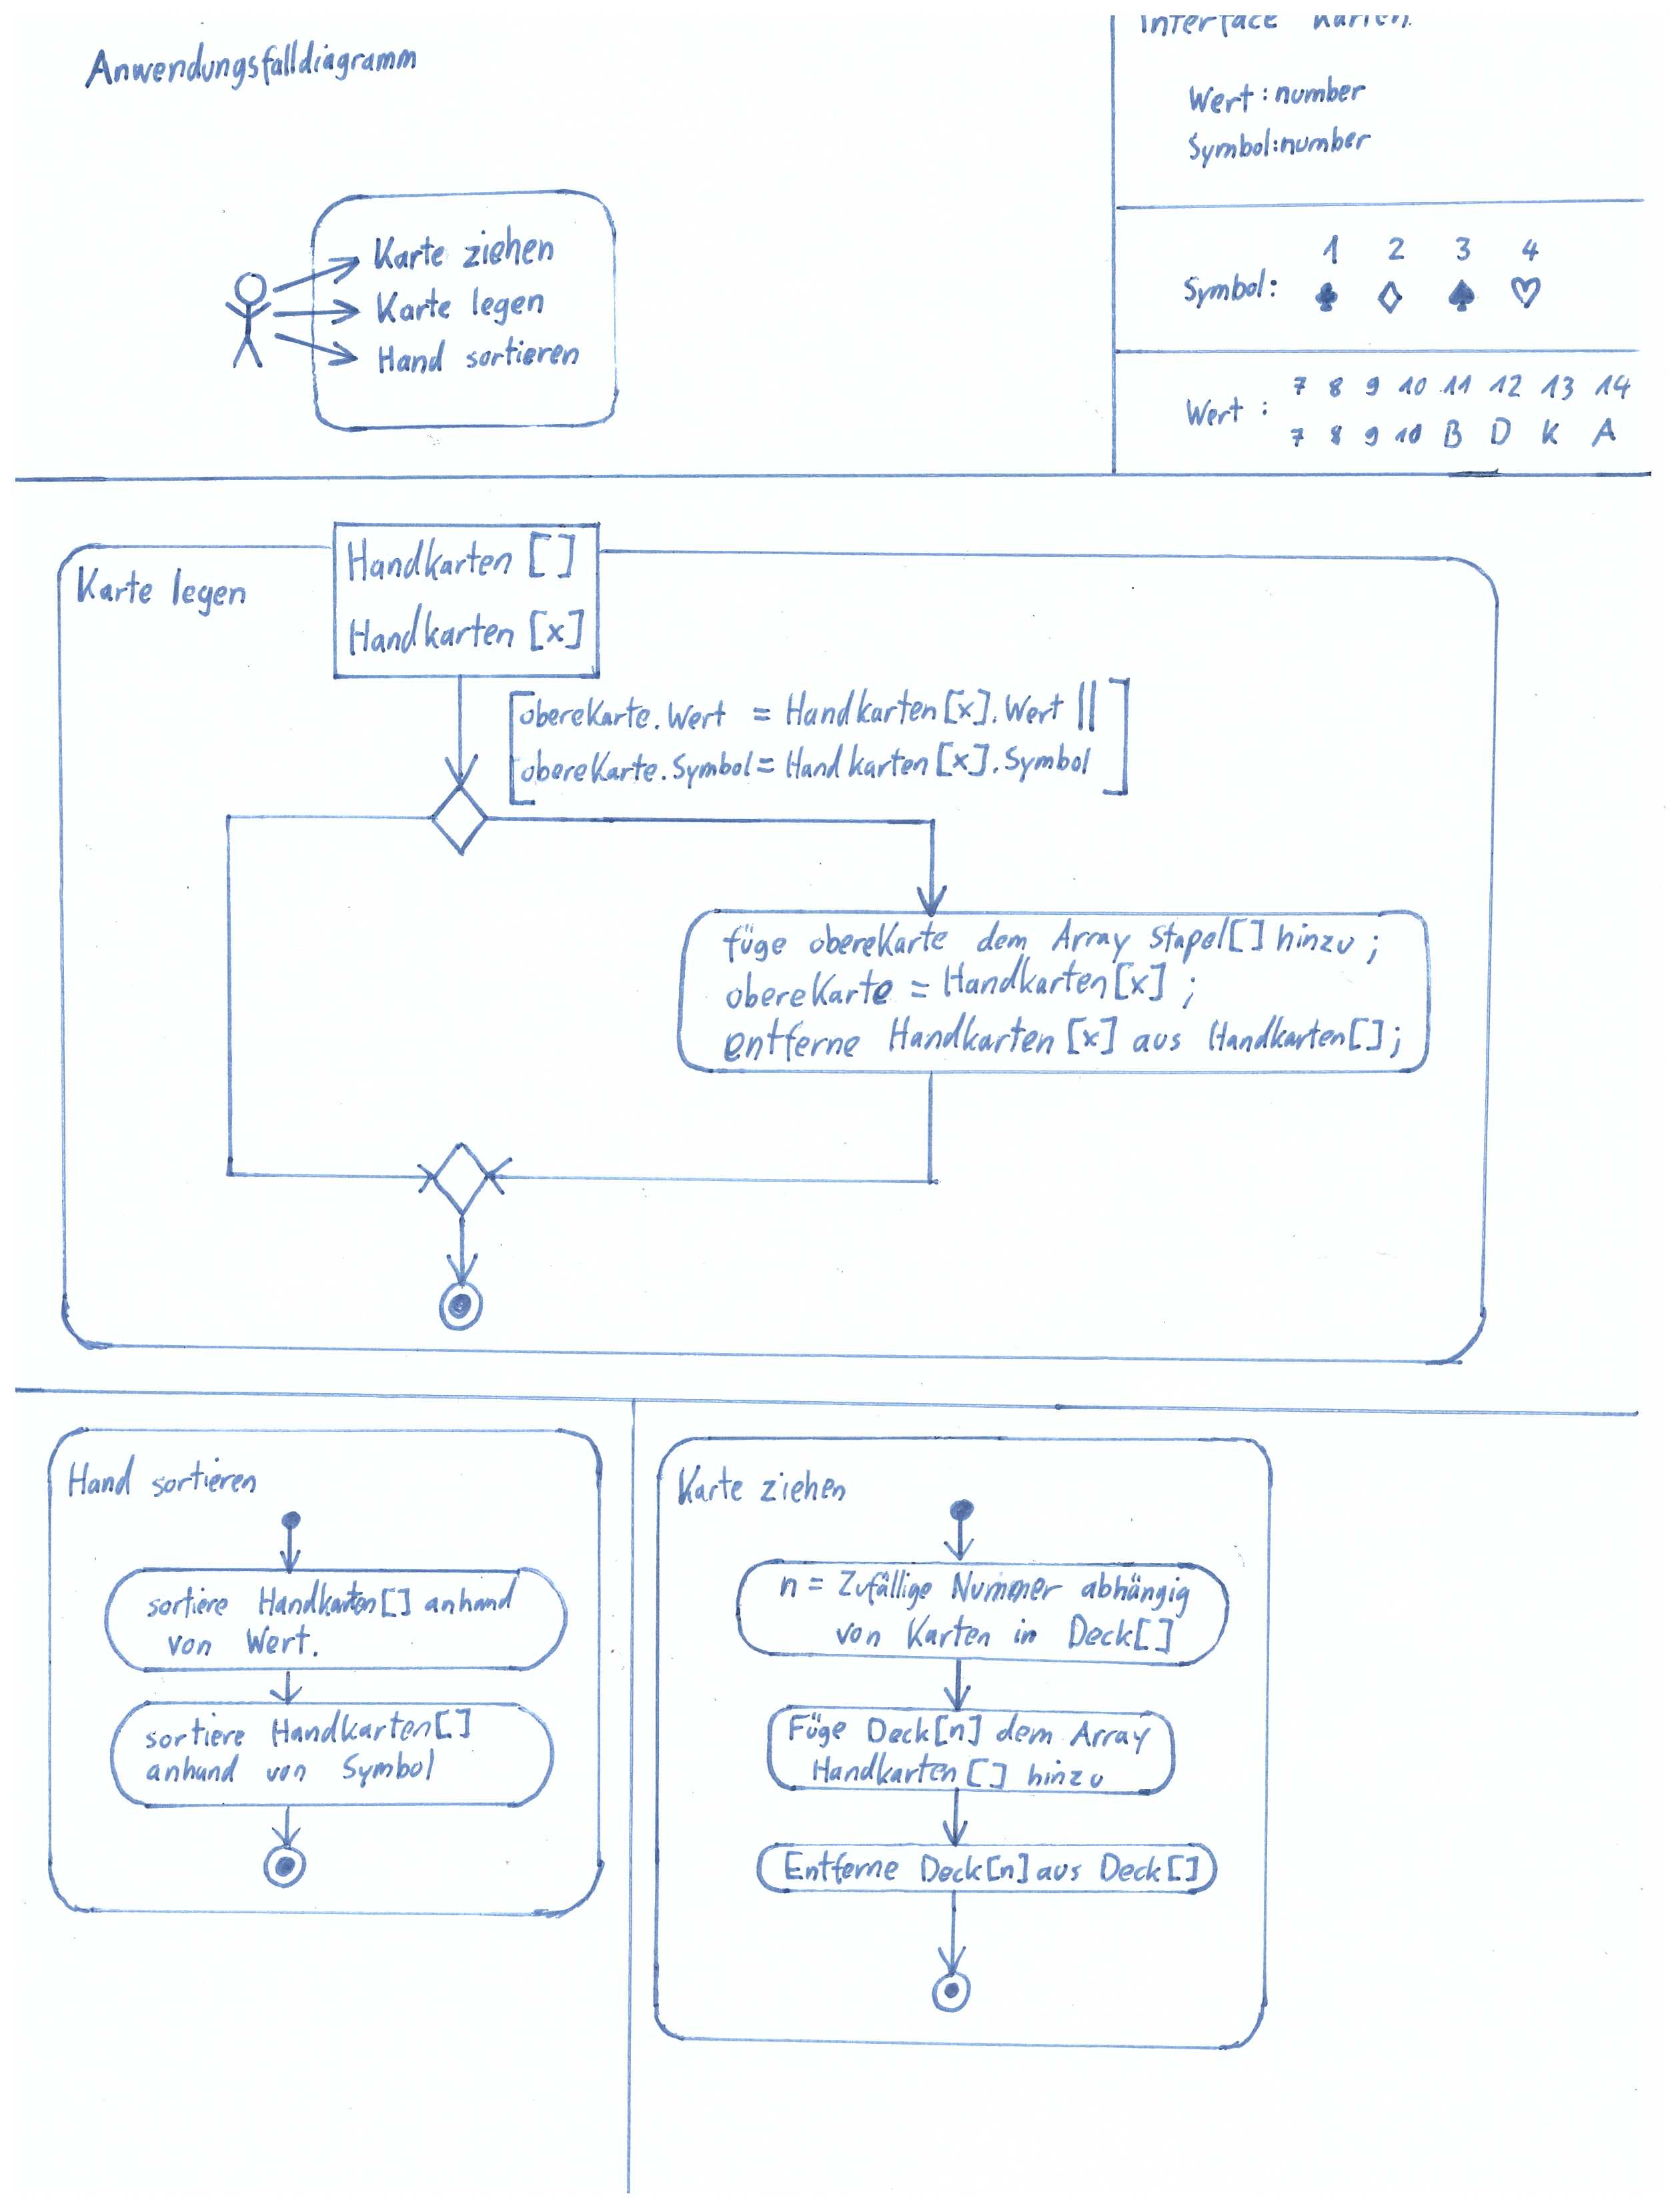 Anwendungsfalldiagramm
Interface Karten
Wert: number
Symbol: number
Karte ziehen
Karte legen
Hand sortieren
1 2 3 4
Symbol: ♣ ◇ ♠ ♡
7 8 9 10 11 12 13 14
Wert :
7 8 9 10 B D K A
Karte legen
Handkarten []
Handkarten [x]
[obereKarte.Wert = Handkarten[x].Wert ||
obereKarte.Symbol = Handkarten[x].Symbol]
füge obereKarte dem Array Stapel[] hinzu ;
obereKarte = Handkarten[x] ;
entferne Handkarten [x] aus Handkarten[];
Hand sortieren
sortiere Handkarten[] anhand
von Wert.
sortiere Handkarten[]
anhand von Symbol
Karte ziehen
n = Zufällige Nummer abhängig
von Karten in Deck[]
Füge Deck[n] dem Array
Handkarten [] hinzu
Entferne Deck[n] aus Deck[]